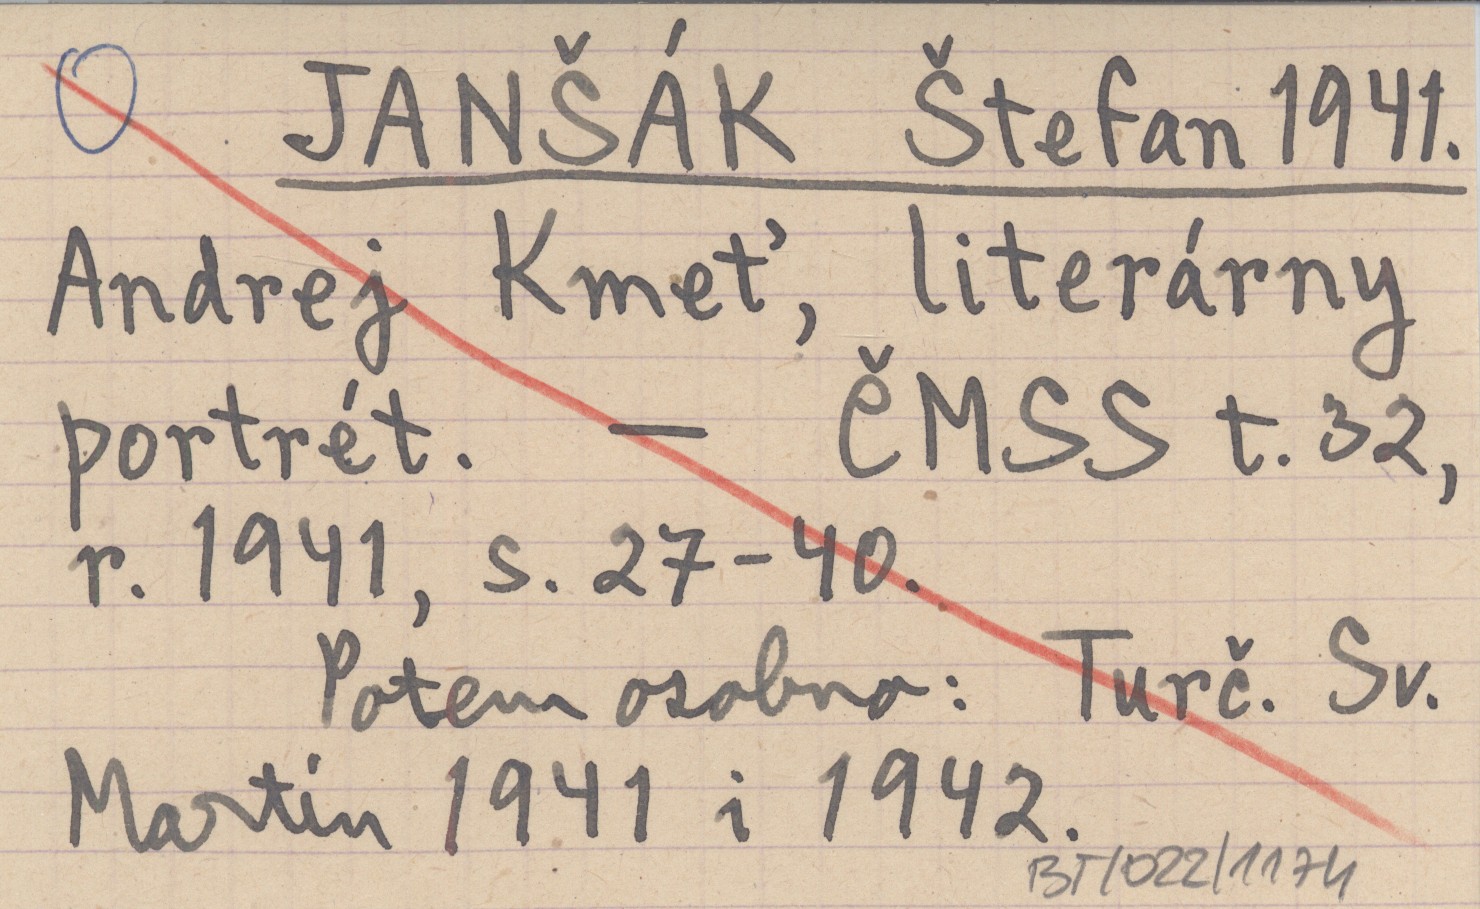 JANŠÁK Štefan 1941.
Andrej Kmeť, literárny
portrét. — ČMSS t. 32,
r. 1941, s. 27-40.
Potem osobno: Turč. Sv.
Martin 1941 i 1942.
BT/022/1174